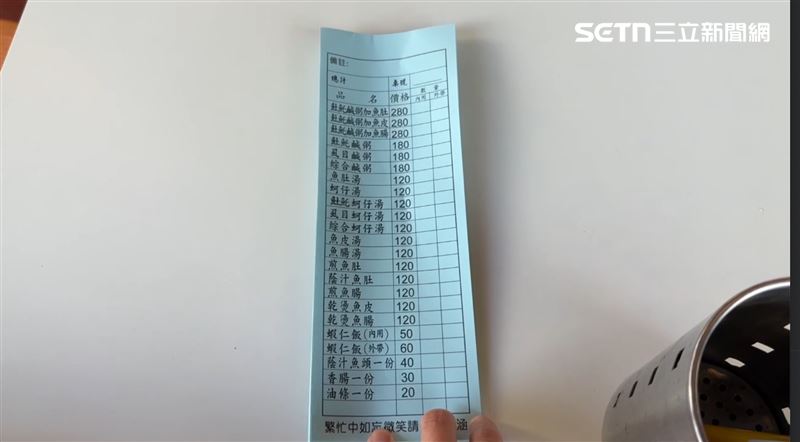 SETN三立新聞網
備註:
總計 桌號
品名 價格 數量
內用 外帶
魠魠鹹粥加魚肚 280
魠魠鹹粥加魚皮 280
魠魠鹹粥加魚腸 280
魠魠鹹粥 180
虱目鹹粥 180
綜合鹹粥 180
魚肚湯 120
蚵仔湯 120
魠魠蚵仔湯 120
虱目蚵仔湯 120
綜合蚵仔湯 120
魚皮湯 120
魚腸湯 120
煎魚肚 120
蔭汁魚肚 120
煎魚腸 120
乾燙魚皮 120
乾燙魚腸 120
蝦仁飯(內用) 50
蝦仁飯(外帶) 60
蔭汁魚頭一份 40
香腸一份 30
油條一份 20
繁忙中如忘微笑請 涵